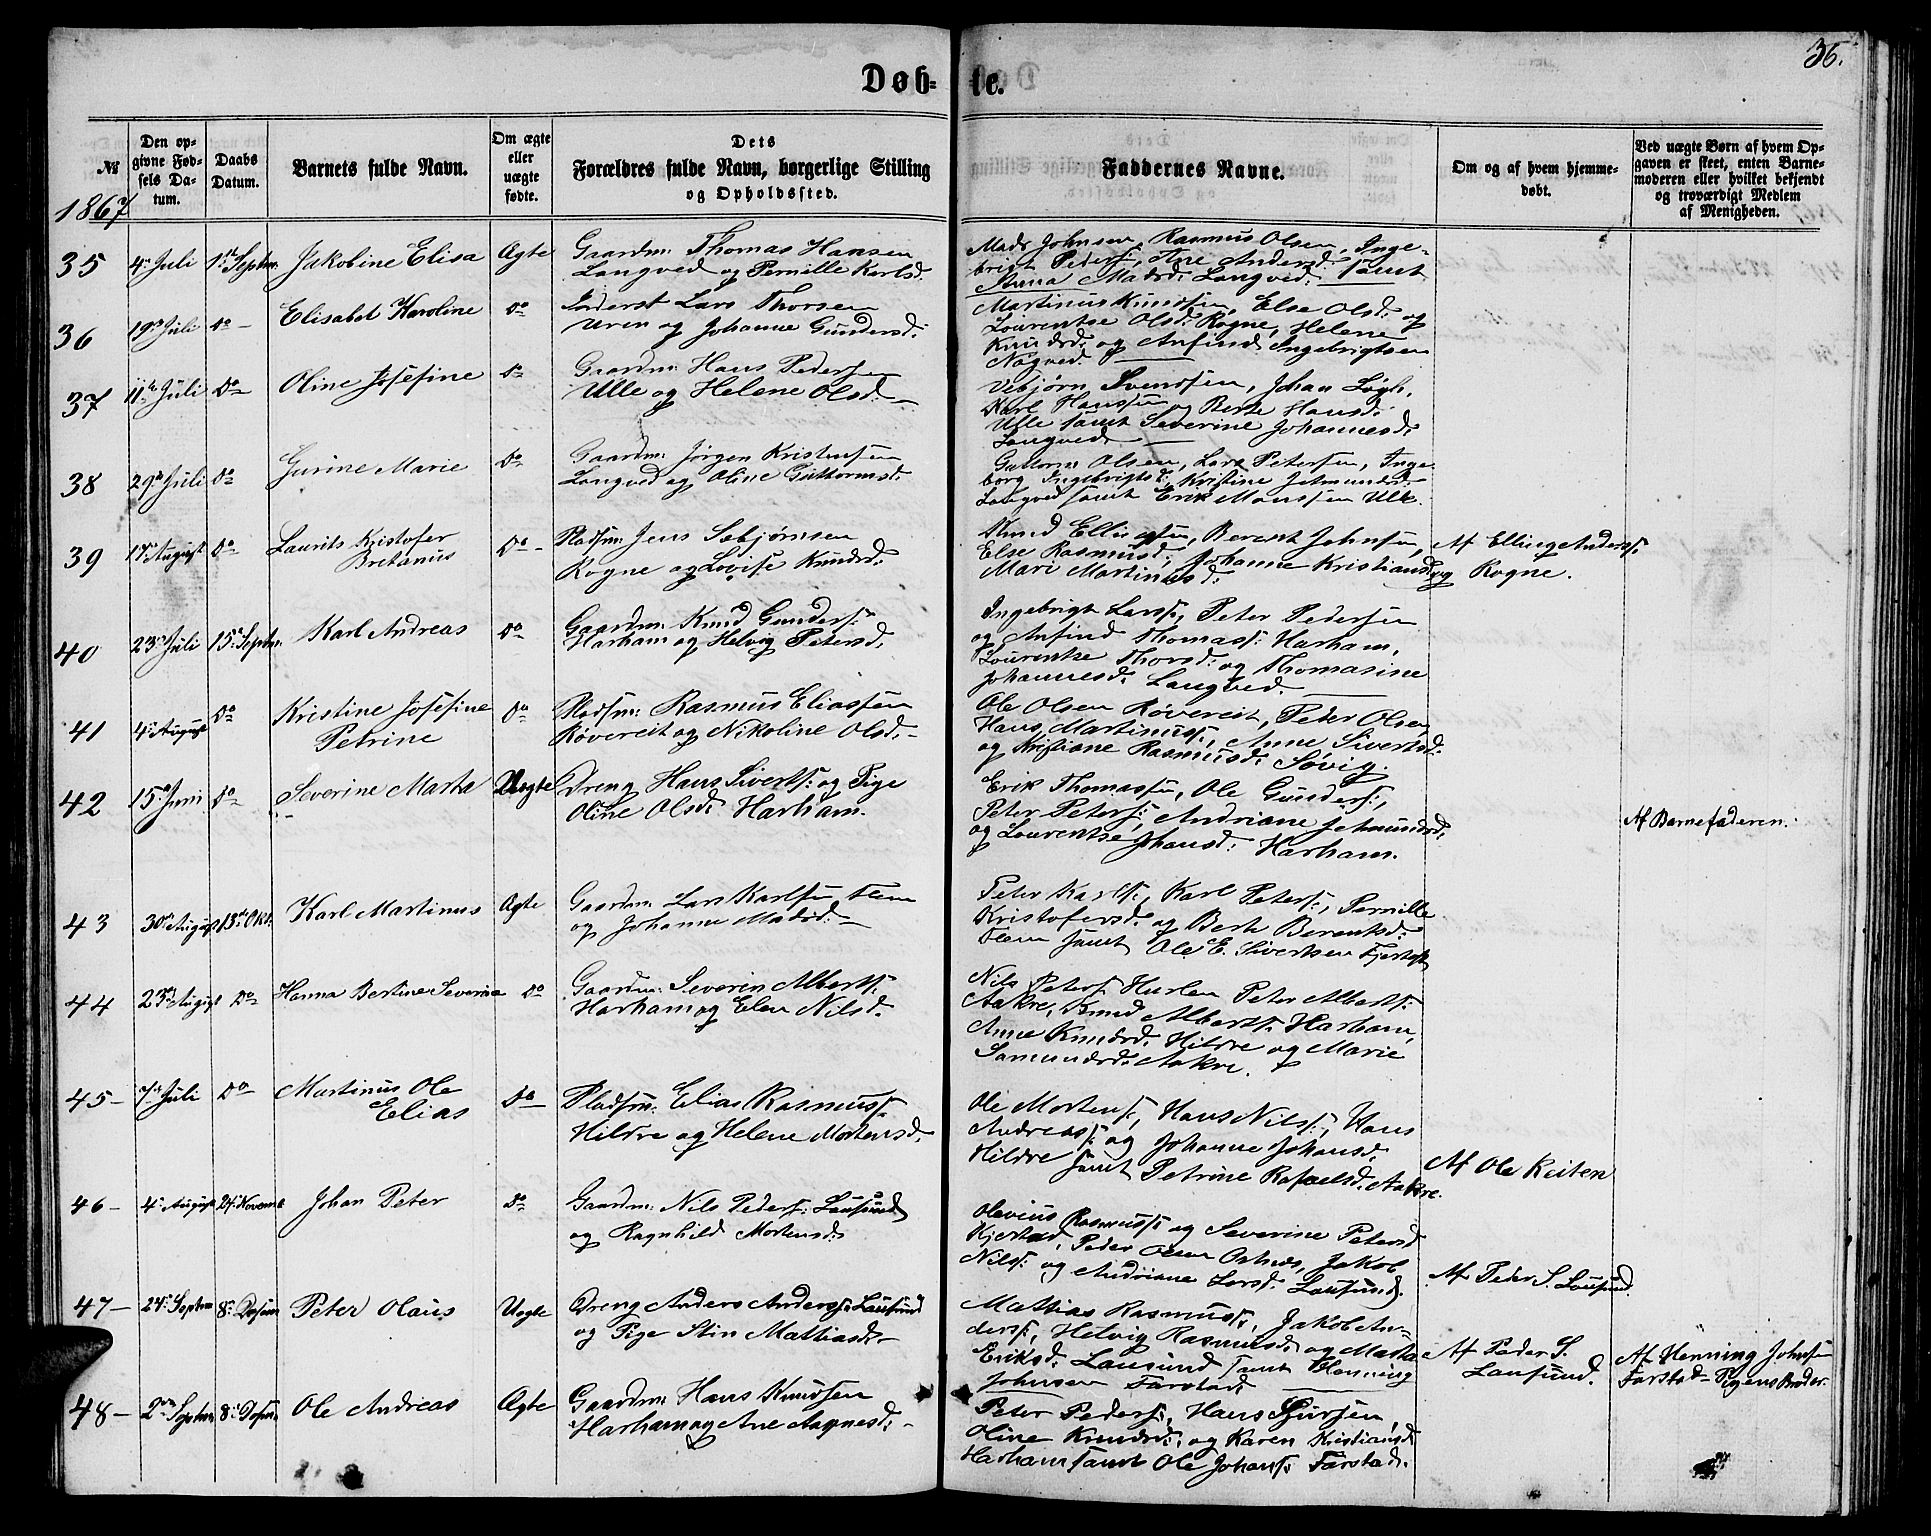 36.
Døb-
te.
№
Den op-
givne Fød-
sels Da-
tum.
Daabs
Datum.
Barnets fulde Navn.
Om ægte
eller
uægte
fødte.
Dets
Forældres fulde Navn, borgerlige Stilling
og Opholdssted.
Faddernes Navne.
Om og af hvem hjemme-
døbt.
Ved uægte Børn af hvem Op-
gaven er skeet, enten Barne-
moderen eller hvilket bekjendt
og troværdigt Medlem
af Menigheden.
1867
35 4de Juli 1ste Septm: Jakobine Elisa Ægte
Gaardm: Thomas Hansen
Longved og Pernille Karlsd.
Mads Johnsen, Rasmus Olsen, Inge-
brigt Peders:, Ane Andersd: samt
Anna Madsd: Longved.
36 19de Juli do Elisabet Karoline do
Inderst Lars Thorsen
Uren og Johanne Gundersd:
Martinus Knudsen, Else Olsd: og
Lourentse Olsd: Rogne, Helene
Knudsd: og Anfind Ingebrigtsen
Nogved
37 11te Juli Do Oline Josefine Do
Gaardm: Hans Pedersen
Ulle og Helene Olsd:
Vebjørn Svendsen, Johan Løgh,
Karl Hanssen og Berte Hansd:
Ulle samt Severine Johannesd:
Longved
38 29de Juli Do Gurine Marie Do
Gaardm: Jørgen Kristensen
Longved og Oline Guttormsd:
Guttorm Olsen, Lars Petersen, Inge-
borg Ingebrigtsd: Kristine Jetmundsd:
Longved samt Erik Monssen Ulle.
39 17de August Do Laurits Kristofer
Britanus Do
Pladsm: Jens Sebjørnsen
Rogne og Lovise Knudsd:
Knud Ellingsen, Berent Johnsen,
Else Rasmusd:, Johanne Kristiansd: og
Mari Martinusd:
Af Elling Anderss:
Rogne.
40 23de Juli 15de Septm: Karl Andreas Do
Gaardm: Knud Gunders:
Harham og Helvig Petersd:
Ingebrigt Larss:, Peter Pedersen
og Anfind Thomass: Harham,
Lourentse Thorsd: og Thomasine
Johannesd: Longved.
41 4de August Do Kristine Josefine
Petrine Do
Pladsm: Rasmus Eliassen
Røvereit og Nikoline Olsd:
Ole Olsen Røvereit, Peder Olsen,
Hans Martinuss:, Anne Sivertsd:
og Kristiane Rasmusd: Søvig.
42 15de Juni Do Severine Marta Uægte
Dreng Hans Siverts: og Pige
Oline Olsd: Harham.
Erik Thomassen, Ole Gunders:,
Peter Peters:, Andriane Jetmundsd:
og Lourentse Johansd: Harham.
Af Barnefaderen.
43 30te August 13de Okt: Karl Martinus Ægte
Gaardm: Lars Karlsen Flem
og Johanne Madsd:
Peter Karls:, Karl Peters:, Pernille
Kristofersd: og Berte Berentsd:
Flem samt Ole E. Sivertsen Fjertoft
44 23de August Do Hanna Bertine Severine Do
Gaardm: Severin Alberts:
Harham og Elen Nilsd.
Nils Peters: Hurlen Peter Alberts:
Aakre, Knud Alberts: Harham,
Anne Knudsd: Hildre og Marie
Samundsd: Aakre.
45 7de Juli Do Martinus Ole
Elias Do
Pladsm: Elias Rasmuss:
Hildre og Helene Mortensd:
Ole Mortens:, Hans Nils:, Hans
Andreass: og Johanne Johansd:
Hildre samt Petrine Rafaelsd: Aakre.
Af Ole Reiten
46 4de August 24de Novemb Johan Peter Do
Gaardm: Nils Peders: Lausund
og Ragnhild Mortensd:
Olevius Rasmuss: og Severine Petersd
Kjerstad, Peder Olsen Oshves, Jakob
Nils: og Andriane Larsd: Lausund.
Af Peder S. Lausund.
47 24de Septm 8de Desem Peter Olaus Uægte
Dreng Anders Anders: Lausund
og Pige Stin Mattiasd:
Mattias Rasmuss:, Jakob An-
ders:, Helvig Rasmusd: og Marta
Eriksd: Lausund samt Henning
Johnsen Farstad.
Af Peder S.
Lausund.
Af Henning Johnsen
Farstad Pigens Broder.
48 2den Septm 8de Desem Ole Andreas Ægte
Gaardm: Hans Knudsen
Harham og Ane Aagnesd:
Peter Peders:, Hans Sjursen,
Oline Knudsd:, og Karen Kristiansd
Harham samt Ole Johans: Farstad.